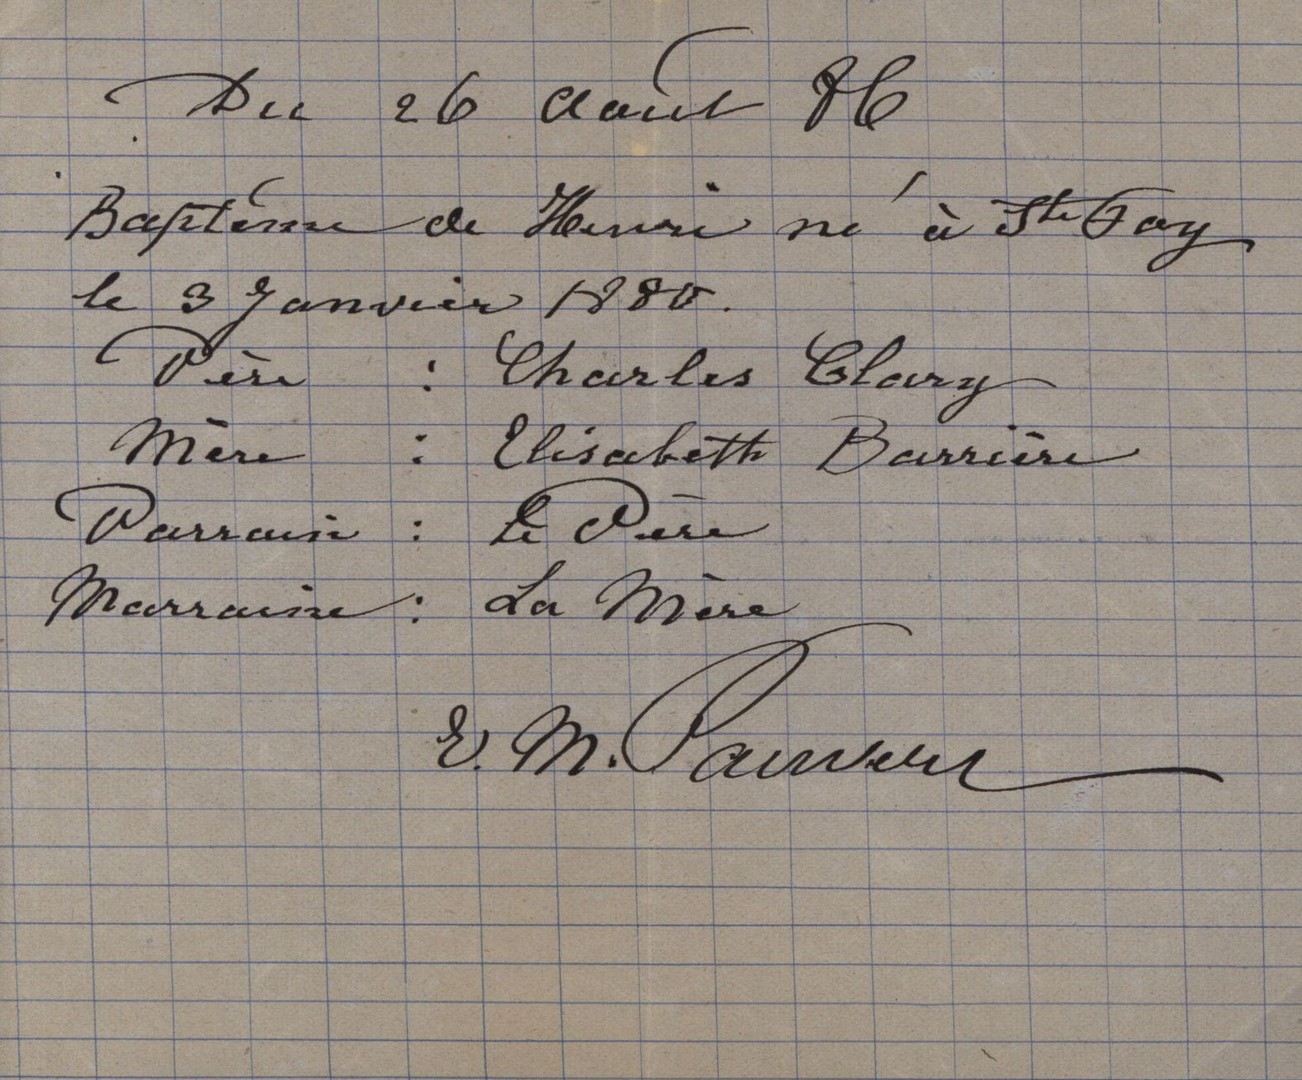 Du 26 Août 86
Baptême de Henri né à Ste Foy
le 3 Janvier 1880.
Père : Charles Clary
Mère : Elisabeth Barrière
Parrain : Le Père
Marraine : La Mère
E. M.